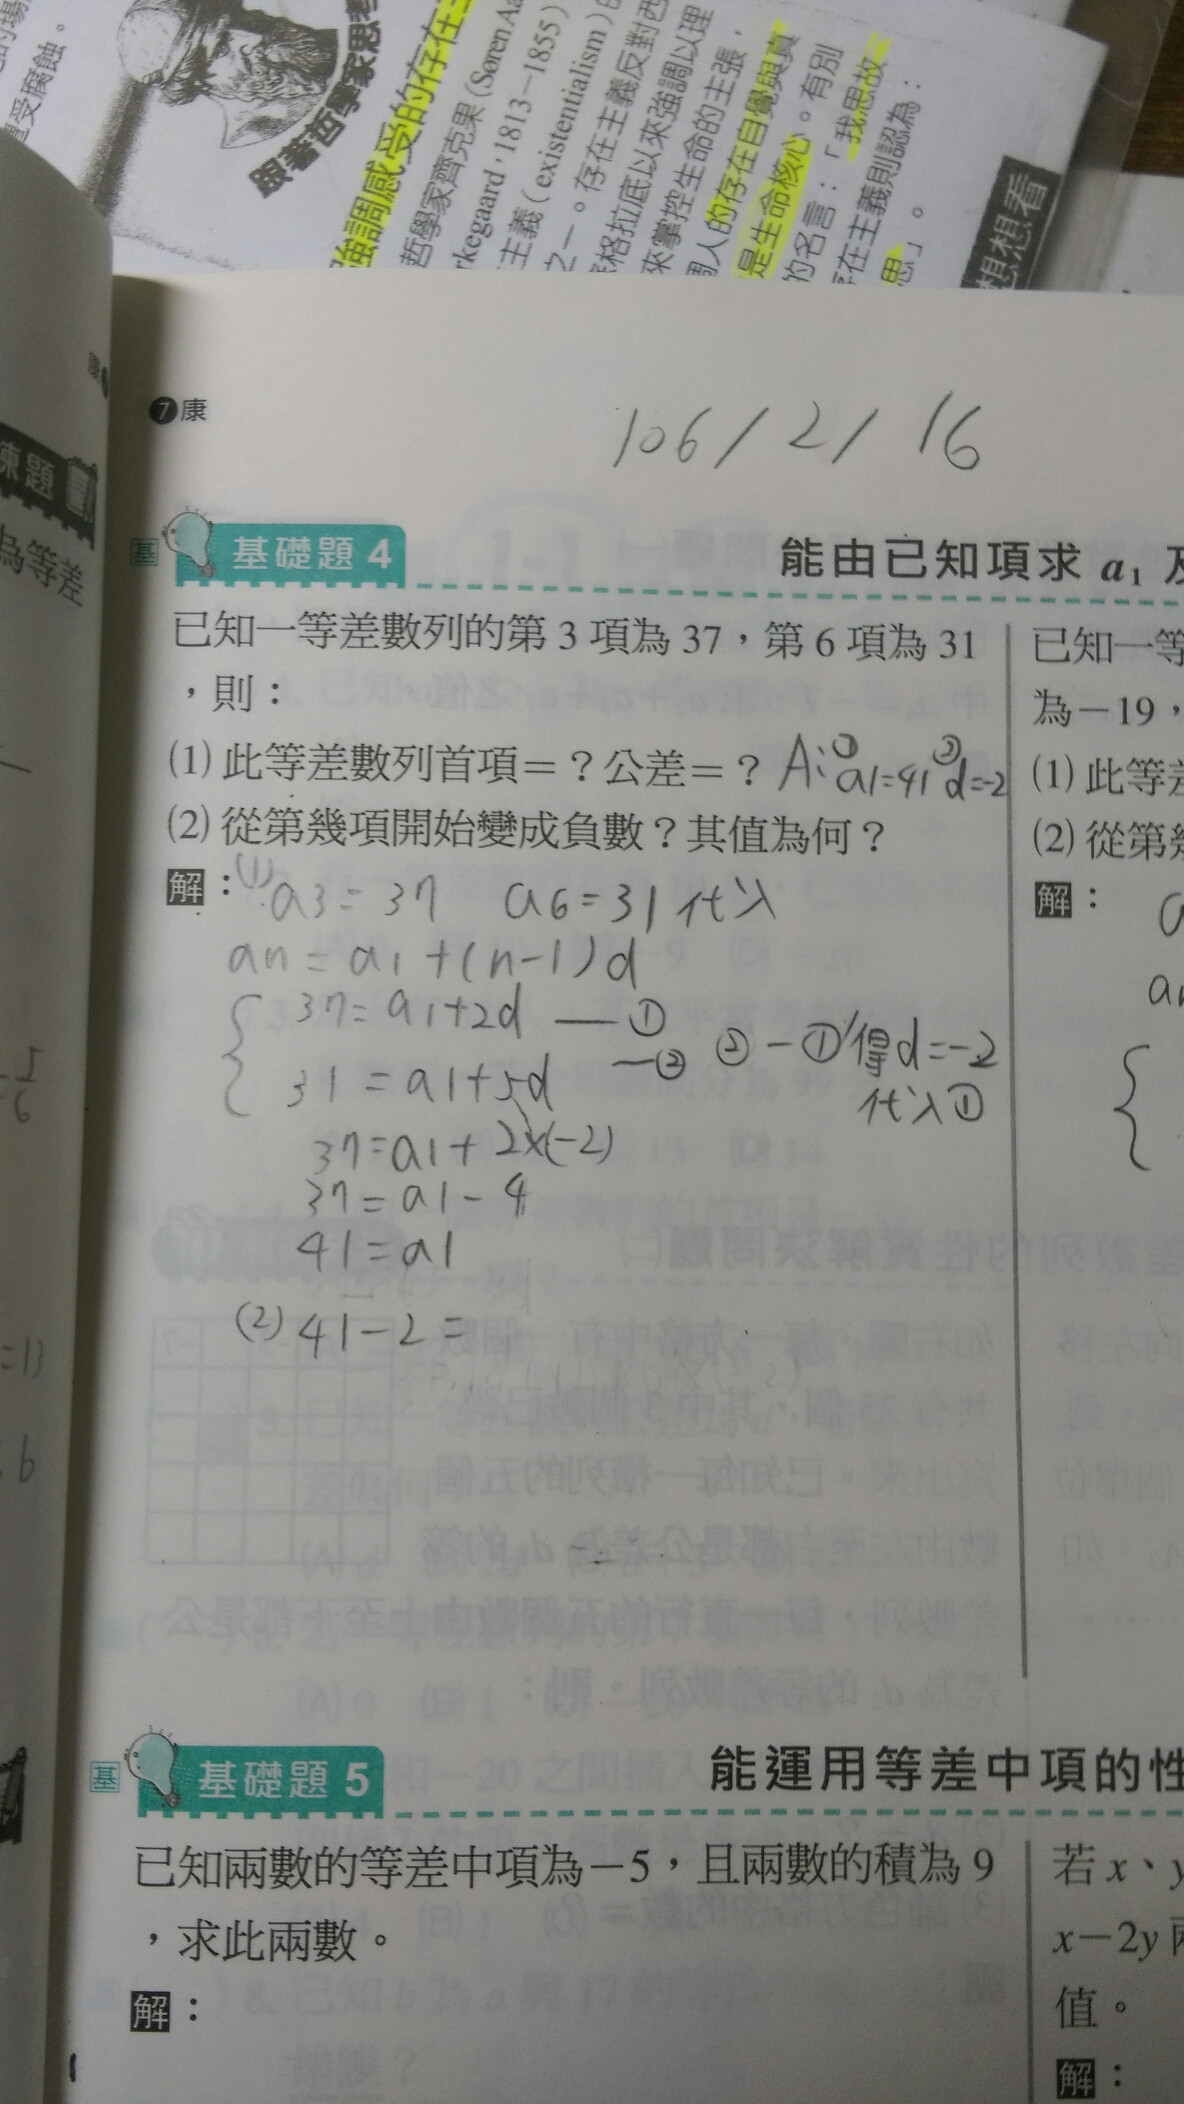 跟著哲學家思考
強調感受的存在主
哲學家齊克果(Søren Aa
rkegaard,1813-1855)
主義(existentialism)的
之一。存在主義反對西
格拉底以來強調以理
來掌控生命的主張,
人的存在自覺與真
是生命核心。有別
的名言:「我思故
存在主義則認為:
思」。
想想看
遭受腐蝕。
練題
為等差
5
6
=13
b
❼康
106/2/16
基 基礎題 4 能由已知項求 a₁ 及
已知一等差數列的第 3 項為 37,第 6 項為 31
,則:
(1) 此等差數列首項=?公差=? A:① a1=41 ② d=-2
(2) 從第幾項開始變成負數?其值為何?
解:(1) a3=37 a6=31 代入
an=a1+(n-1)d
37=a1+2d —①
31=a1+5d —② ②-①得d=-2
代入①
37=a1+2x(-2)
37=a1-4
41=a1
(2) 41-2=
已知一等
為-19,
(1) 此等差
(2) 從第幾
解: a
an
{
基 基礎題 5 能運用等差中項的性
已知兩數的等差中項為-5,且兩數的積為 9
,求此兩數。
解:
若 x、y
x-2y 兩
值。
解: